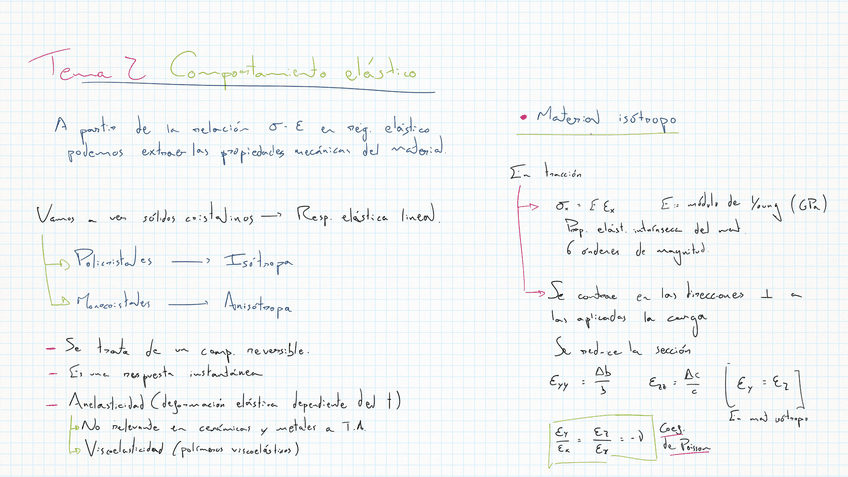 Tema 2 Comportamiento elástico
A partir de la relación σ-ε en reg. elástico
podemos extraer las propiedades mecánicas del material.
Vamos a ver sólidos cristalinos → Resp. elástica lineal.
Policristales → Isótropa
Monocristales → Anisótropa
- Se trata de un comp. reversible.
- Es una respuesta instantánea
- Anelasticidad (deformación elástica dependiente del t)
No relevante en cerámicas y metales a T.A.
Viscoelasticidad (polímeros viscoelásticos)
• Material isótropo
En tracción
σx = E εx E: módulo de Young (GPa)
Prop. elást. intrínseca del mat.
6 órdenes de magnitud.
Se contrae en las direcciones ⊥ a
las aplicadas la carga
Se reduce la sección
εyy = Δb/b εzz = Δc/c [εy = εz]
En mat isótropo
εy/εx = εz/εx = -ν Coef.
de Poisson